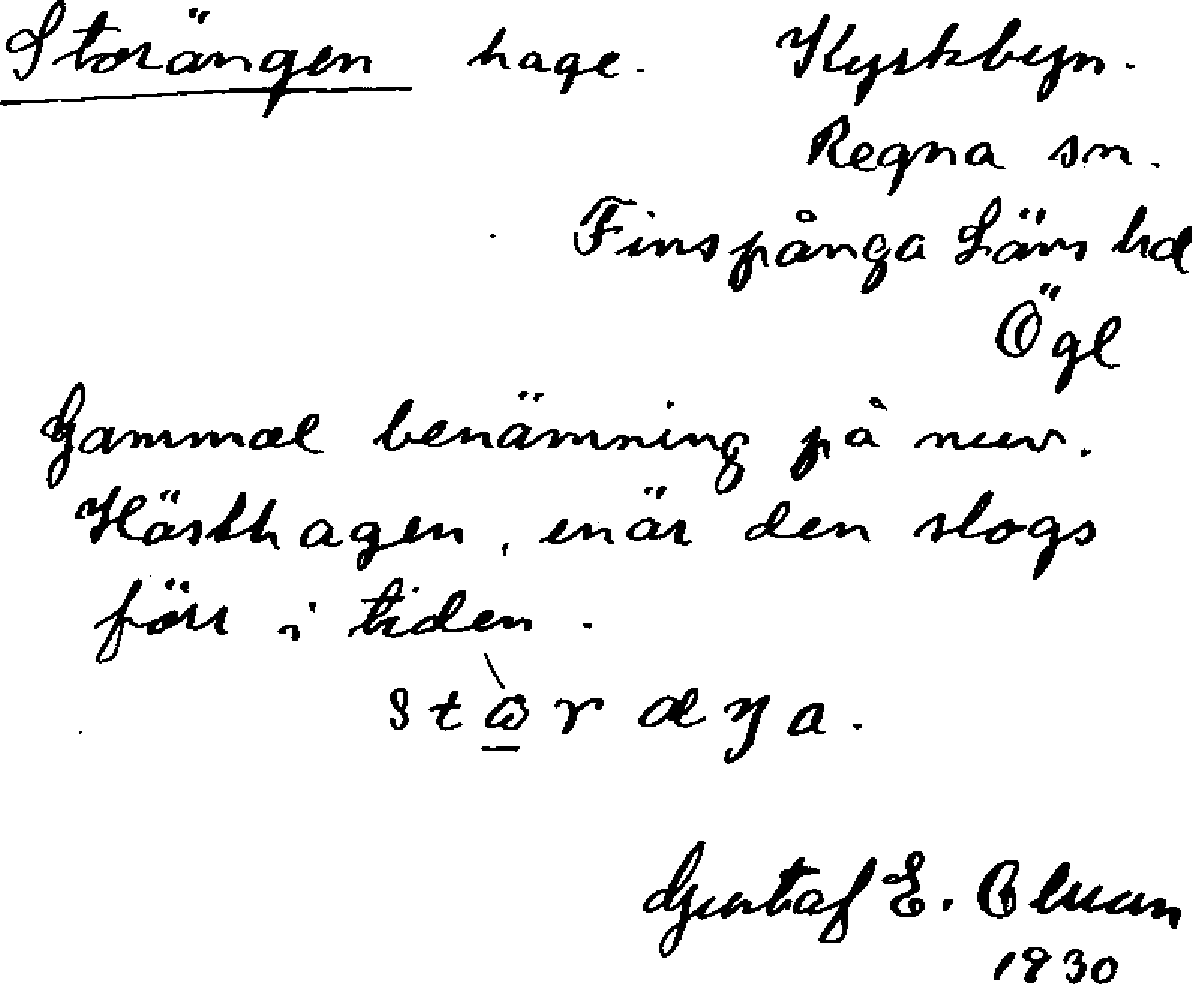 Storängen hage. Kyrkbyn.
Regna sn.
Finspånga Läns hd
Ögl
Gammal benämning på nuv.
Hästhagen, enär den slogs
förr i tiden.
Gustaf E.
1930